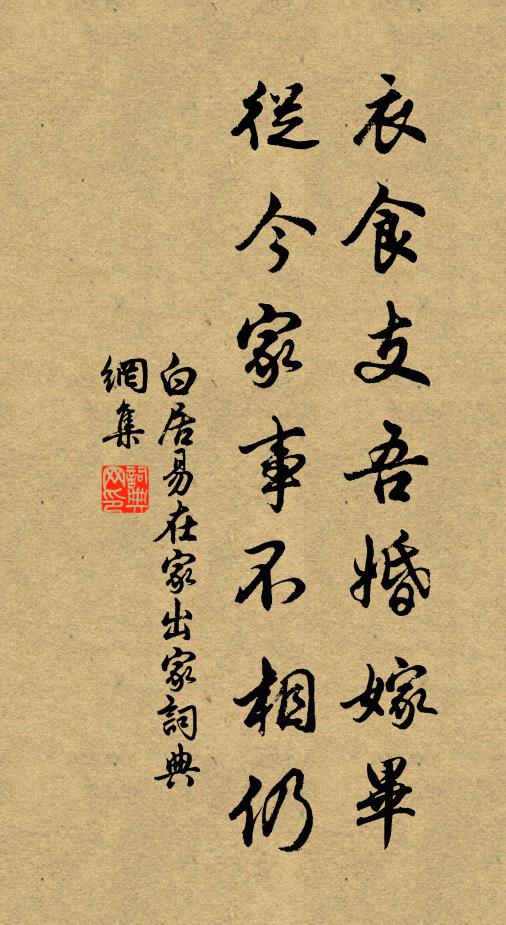 衣食支吾婚嫁畢
從今家事不相仍
白居易在家出家詞典
網集
詞典网印